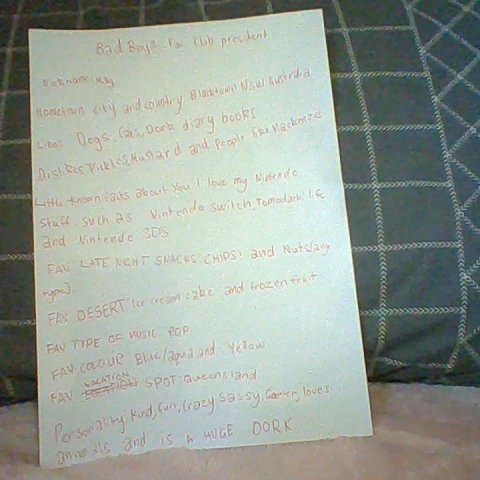 Bad Boyz Fan Club president
Nickname: Muby
Hometown city and country: Blacktown NSW Australia
Likes: Dogs, Cats, Dork diary books
Dislikes: Pickles, Mustard and People like Mackenzie
Little-known facts about you: I love my Nintendo
Stuff such as Nintendo switch, Tomodachi life
and Nintendo 3DS
FAV LATE NIGHT SNACKS: CHIPS! and Nuts (any
type).
FAV DESERT: Ice cream cake and frozen fruit
FAV TYPE OF MUSIC: POP
FAV COLOUR: Blue/aqua and Yellow
FAV VACATION SPOT: Queensland
Personality: Kind, Fun, Crazy Sassy Gamer, loves
animals and is A HUGE DORK